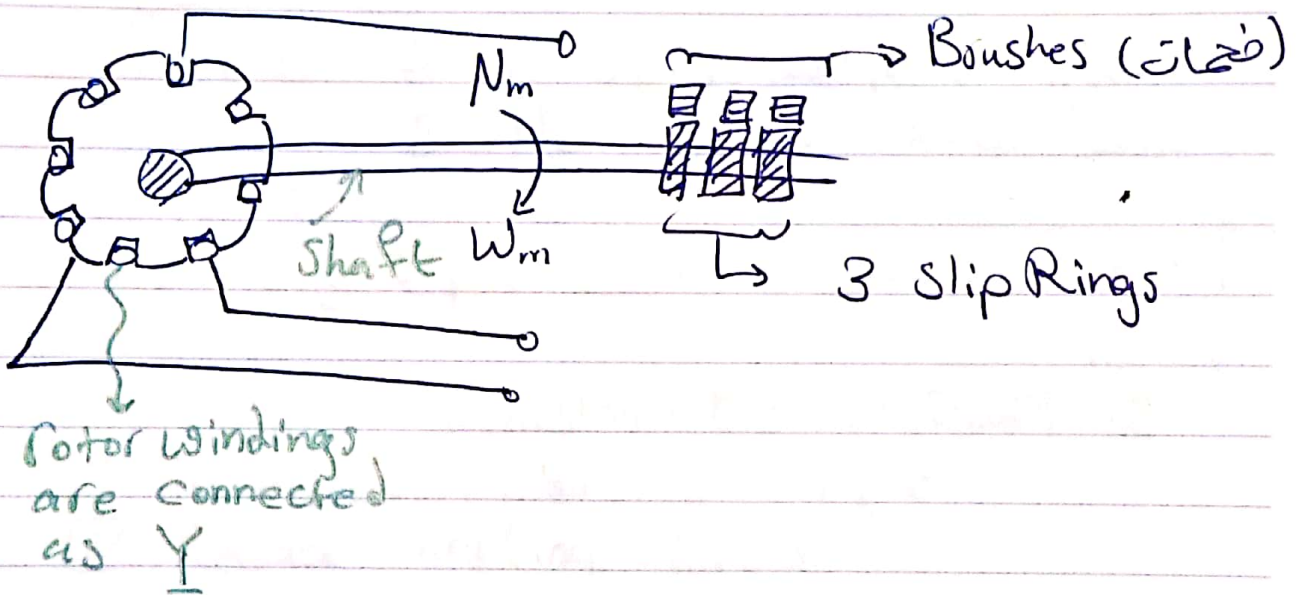 Boushes (فحمات)
Nm
Shaft
Wm
3 Slip Rings
rotor windings
are connected
as Y